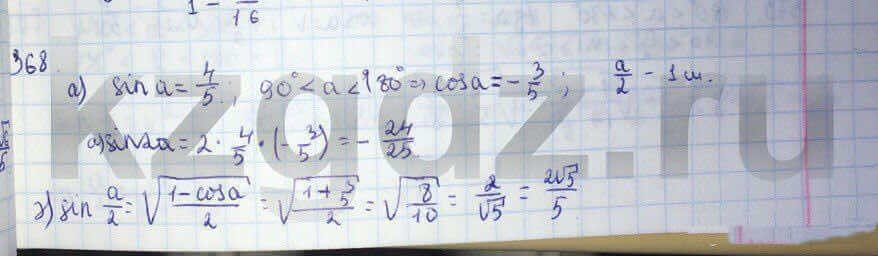 1 - /16
368.
a) sin a = 4/5; 90° < a < 180° ⇒ cos a = - 3/5; a/2 - I ч.
а) sin 2a = 2 · 4/5 · (- 3/5) = - 24/25
г) sin a/2 = √((1 - cos a)/2) = √((1 + 3/5)/2) = √(8/10) = 2/√5 = 2√5/5
kzgdz.ru